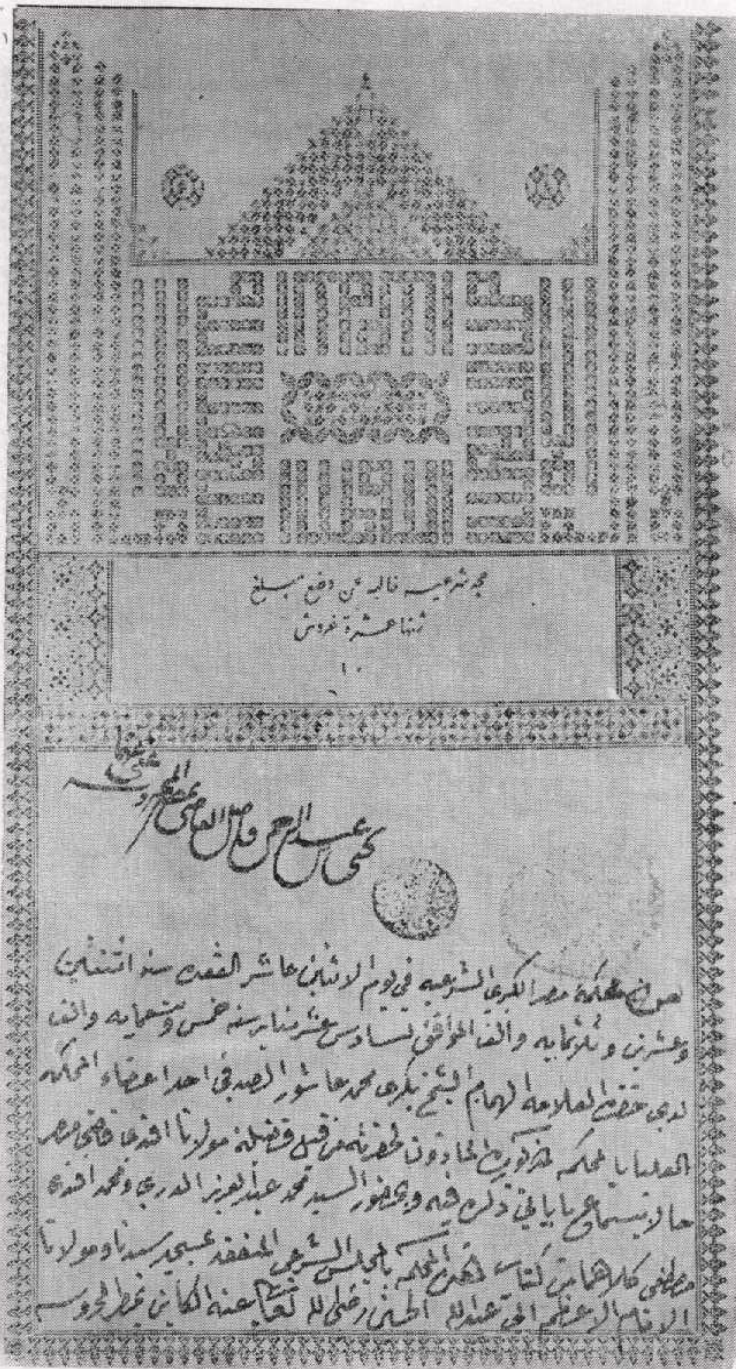 حجه شرعيه خاليه عن وضع مبلغ
ثمنها عشرة غروش
١٠
عبد الرحمن فاضل القاضى بمصر المحروسه
بمحكمة مصر الكبرى الشرعيه فى يوم الاثنين عاشر القعده سنة اثنتين
وعشرين وثلاثمايه والف الموافق لسادس عشر يناير سنة خمس وتسعمايه والف
لدى حضرة العلامه الهمام الشيخ بكرى محمد عاشور الصدفى احد اعضاء المحكمه
العليا بالمحكمه المذكوره الماذون لحضرته من قبل فضيلة مولانا افندى قاضى مصر
حالا بسماع ما ياتى ذكره فيه وبحضور السيد محمد عبد العزيز الدرى ومحمد افندى
مصطفى كلاهما من كتاب هذه المحكمه بالمجلس الشرعى المنعقد بمسجد سيدنا ومولانا
الامام الاعظم ابى عبد الله الحسين رضى الله تعالى عنه الكاين بخط المحروسه